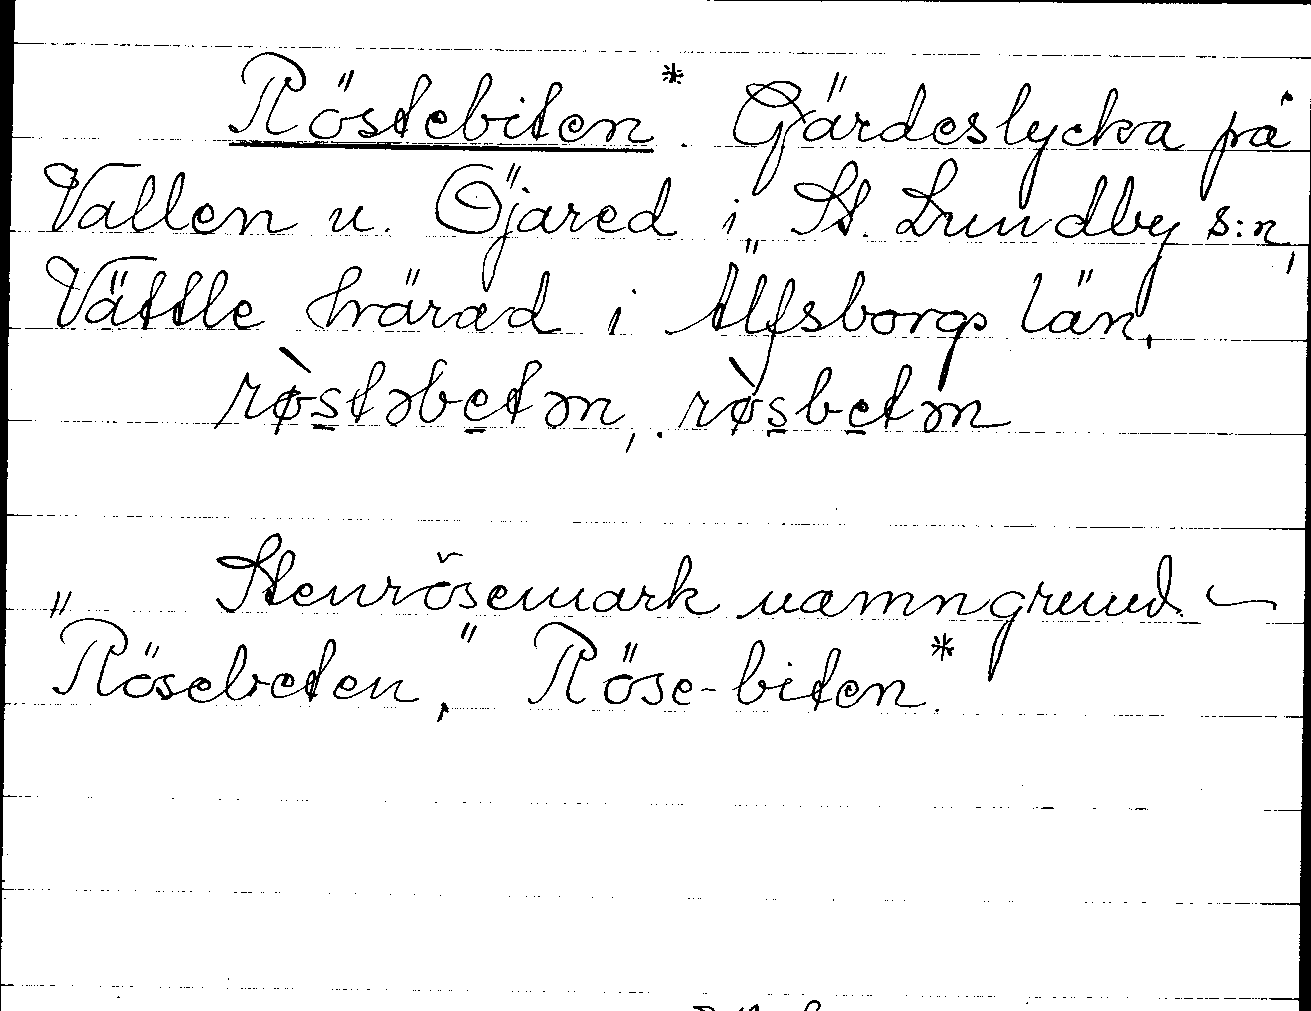 Röstebiten*. Gärdeslycka på
Vallen u. Öjared i St. Lundby s:n,
Vättle härad i Älfsborgs län.
røstəbetən, røsbetən
" Stenrösemark namngrund. —
Rösebeten," Röse-biten.*